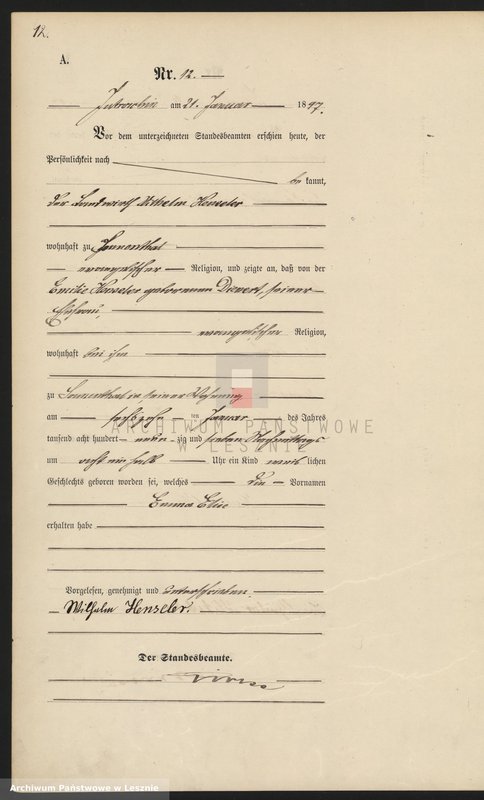 12.
A.
Nr. 12.
Jutroschin am 21. Januar 1897.
Vor dem unterzeichneten Standesbeamten erschien heute, der
Persönlichkeit nach
be kannt,
der Landwirth Wilhelm Henseler
wohnhaft zu Sonnenthal
evangelischer Religion, und zeigte an, daß von der
Emilie Henseler geborenen Dienert, seiner
Ehefrau,
evangelischer Religion,
wohnhaft bei ihm
zu Sonnenthal in seiner Wohnung
am sechszehn ten Januar des Jahres
tausend acht hundert neun zig und sieben Nachmittags
um acht ein halb Uhr ein Kind weib lichen
Geschlechts geboren worden sei, welches die Vornamen
Emma Elise
erhalten habe
Vorgelesen, genehmigt und unterschrieben.
Wilhelm Henseler.
Der Standesbeamte.
ARCHIWUM PAŃSTWOWE
W LESZNIE
Archiwum Państwowe w Lesznie